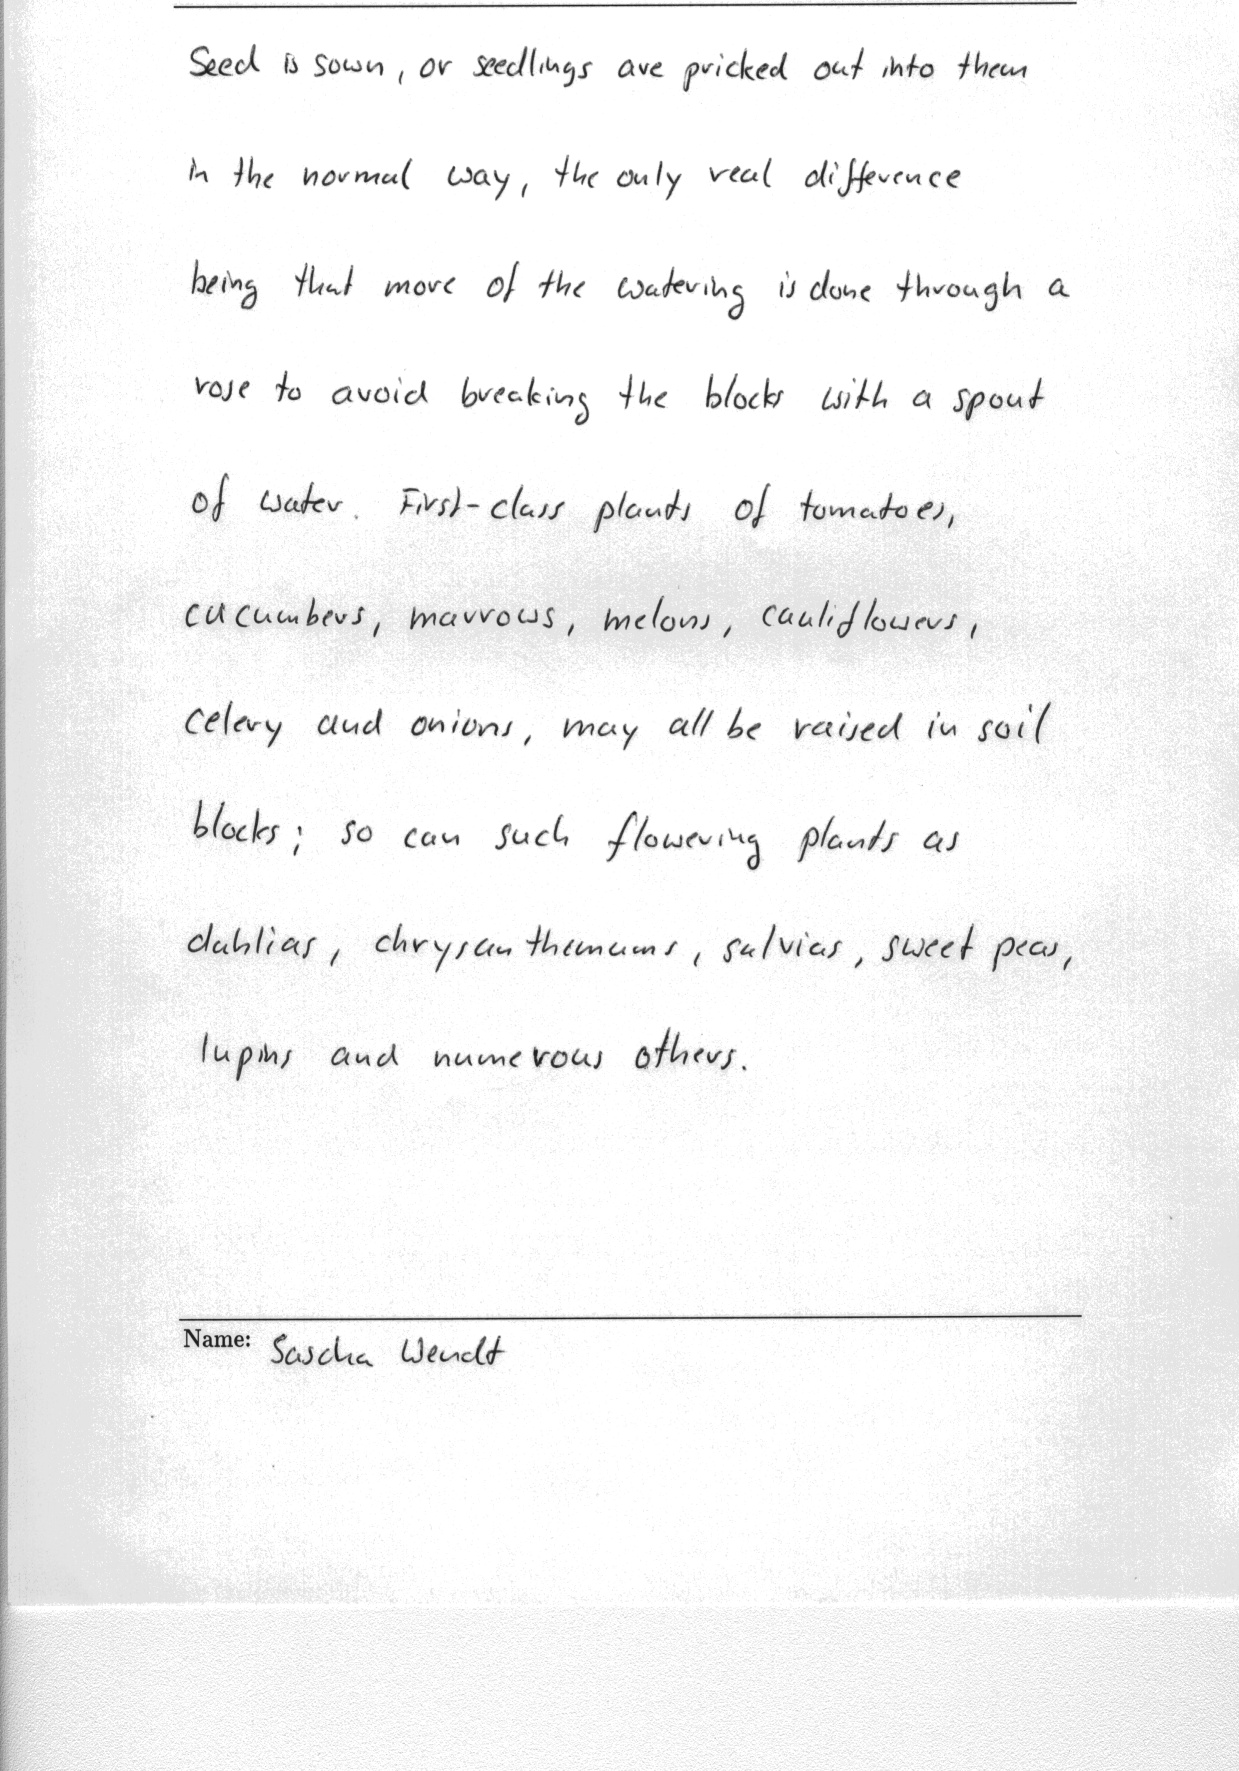 Seed is sown, or seedlings are pricked out into them
in the normal way, the only real difference
being that more of the watering is done through a
rose to avoid breaking the blocks with a spout
of water. First-class plants of tomatoes,
cucumbers, marrows, melons, cauliflowers,
celery and onions, may all be raised in soil
blocks; so can such flowering plants as
dahlias, chrysanthemums, salvias, sweet peas,
lupins and numerous others.
Name: Sascha Wendt